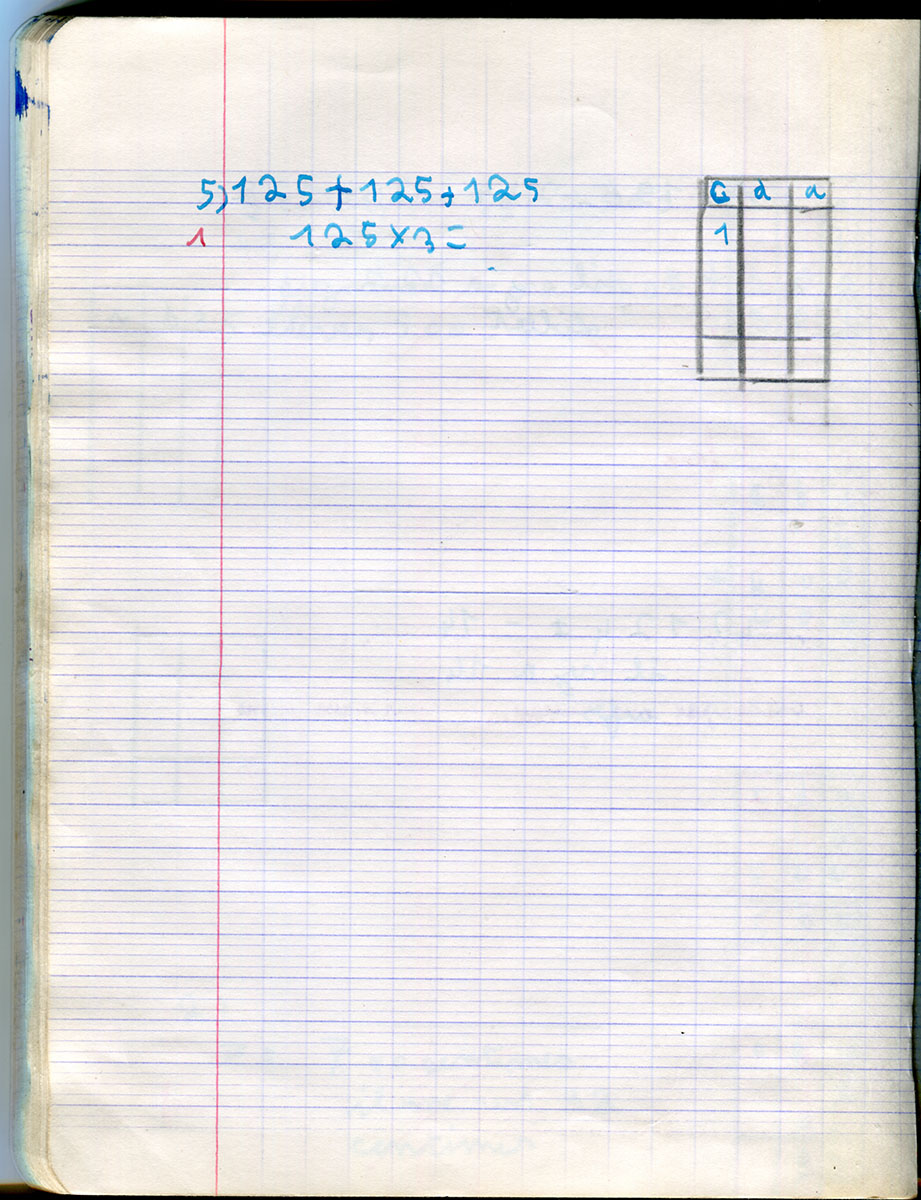 5) 125 + 125 + 125
1 125 × 3 =
c d u
1